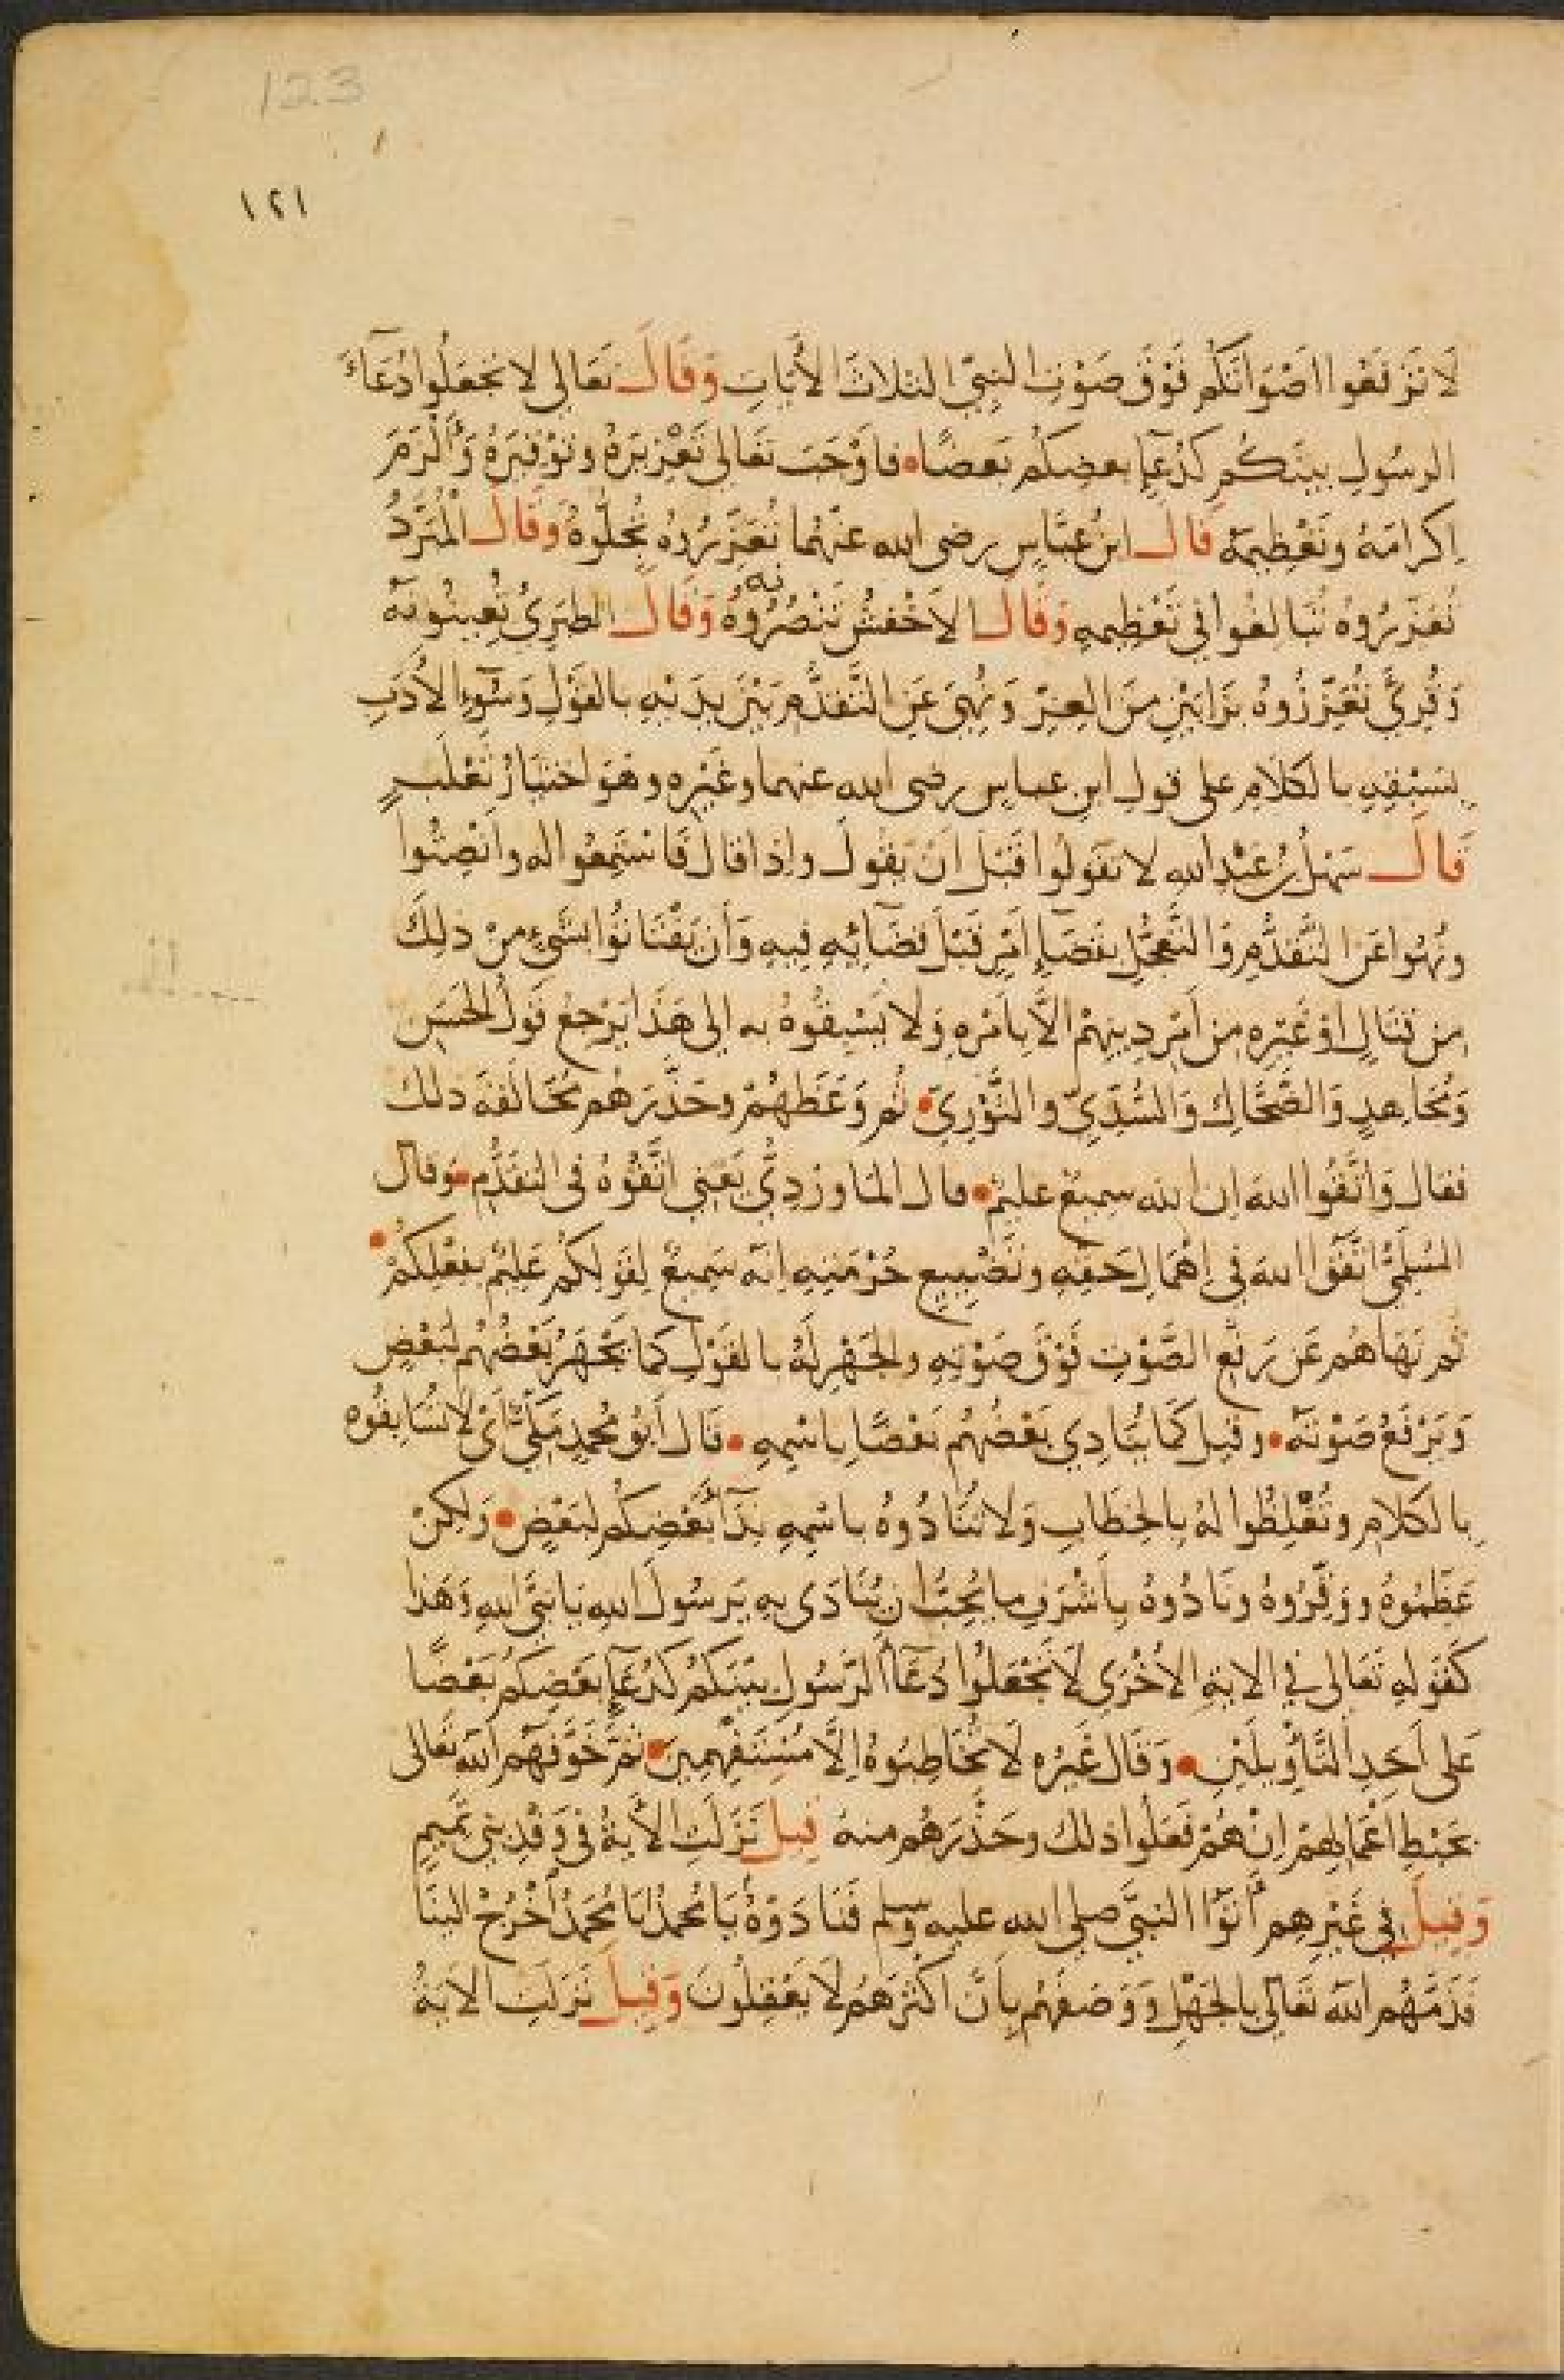 123
١٢١
لَا تَرْفَعُوا اَصْوَاتَكُم فَوْقَ صَوْتِ النَّبِيِّ الثلاثَ الْأَيَاتِ وَقَالَ تَعَالى لا تجعَلُوا دُعَآءَ
الرسُولِ بينَكُم كَدُعَآءِ بعضِكُم بَعضًا فاَوْجَبَ تعَالى تَعْزِيرَهُ وتَوْقيرَهُ وَأَلْزَمَ
اِكرامَهُ وتَعْظِيمَهُ قَالَ ابنُ عبَّاسٍ رضى الله عنْهُما تُعَزِّرُوهُ تُجِلُّوهُ وَقَالَ الْمُبَرَّدُ
تُعَزِّرُوهُ تُبَالِغُوا في تَعْظِيمِهِ وَقَالَ الاَخْفَشُ تَنْصُرُونَهُ وَقَالَ الطبَرِيُّ تُعِينُونَهُ
وَقُرِئَ تُعَزِّزُوهُ بزَايَيْنِ مِنَ العِزِّ وَنُهِيَ عَنِ التَّقَدُّمِ بَيْنَ يدَيْهِ بالقَوْلِ وَسُوءِ الأَدَبِ
بِسَبْقِهِ بالكَلَامِ على قولِ ابن عباسٍ رضى الله عنهما وغَيْرِه وهُوَ اختيَارُ ثَعْلَبٍ
قَالَ سَهْلُ بنُ عَبْدِ اللهِ لا تقولُوا قَبْلَ اَنْ يَقُولَ واِذا قَالَ فَاسْتَمِعُوا له واَنْصِتُوا
ونُهُوا عَنِ التَّقَدُّمِ وَالتَّعَجُّلِ بقضَآءِ اَمْرٍ قَبْلَ قضَآئِهِ فِيهِ وَأَن يَفْتَاتُوا بشَيْءٍ مِنْ ذلِكَ
مِن قتَالٍ اَوْ غَيْرِهِ مِن اَمْرِ دِينِهِمْ الَّا بِاَمْرِهِ وَلا يَسْبِقُوهُ به الى هَذَا يَرْجِعُ قَولُ الحَسَنِ
وَمُجَاهِدٍ وَالضَّحَّاكِ وَالسُّدِّيّ والثَّوْرِيّ ثُم وَعَظَهُمْ وحَذَّرَهُم مُخَالَفَةَ ذلك
فقال وَاتَّقُوا الله ان الله سميعٌ عليمٌ قال الماوَردِيُّ يَعْنِي اتَّقُوهُ فى التقَدُّمِ وقال
السُّلَمِيُّ اتَّقُوا الله فى اِهْمَالِ حَقِّهِ وتَضْيِيعِ حُرْمَتِهِ اِنَّهُ سَمِيعٌ لِقَولِكُم عَلِيمٌ بفِعْلِكُمْ
ثُم نَهَاهُم عَن رَفْعِ الصَّوْتِ فَوْقَ صَوْتِهِ والجَهْرِ لَهُ بالقَوْلِ كما يَجْهَرُ بَعْضُهُم لبَعْضٍ
وَيَرْفَعُ صَوْتَهُ وقيل كَمَا يُنَادِي بَعْضُهُم بَعْضًا بِاسْمِهِ قَال أَبُو مُحمدٍ مَكِّيٌّ اَىْ لا تُسَابِقُوه
بالكلامِ وتُغْلِظُوا لَهُ بالخِطَابِ وَلا تُنَادُوهُ باسْمِهِ نِدَآءَ بَعْضِكُم لبَعْضٍ وَلكِنْ
عَظِّمُوهُ ووَقِّرُوهُ ونَادُوهُ بِأَشْرَفِ ما يُحِبُّ ان يُنَادَى بِهِ يَرسُولَ الله يَا نبيَّ اللهِ وَهَذا
كَقَوْلِهِ تَعَالى في الايةِ الاُخْرَى لَا تَجْعَلُوا دُعَآءَ الرَّسُولِ بيْنَكُمْ كَدُعَآءِ بَعْضِكُمْ بَعْضًا
عَلى اَحَدِ التَّاوِيلَيْنِ وَقَالَ غَيْرُهُ لَا تُخَاطِبُوهُ اِلَّا مُسْتَفْهِمِينَ ثُمَّ خَوَّفَهُم اللهُ تَعَالى
بحَبْطِ اَعْمَالِهِمْ اِنْ هُمْ فَعَلُوا ذلك وحَذَّرَهُم منهُ قِيلَ نَزَلَتِ الأَيَةُ فى وَفْدِ بنى تَمِيمٍ
وَقِيلَ فى غَيْرِهِم أَتَوُا النبيَّ صلى الله عليه وسلم فَنَادَوْهُ يَا مُحمدُ يَا مُحَمدُ اُخْرُجْ الينَا
فَذَمَّهُم اللهُ تَعَالى بالجَهْلِ وَوَصَفَهُم بِاَنَّ اكْثَرَهُمْ لَا يَعْقِلُونَ وَقِيلَ نَزَلَتِ الاَيَةُ